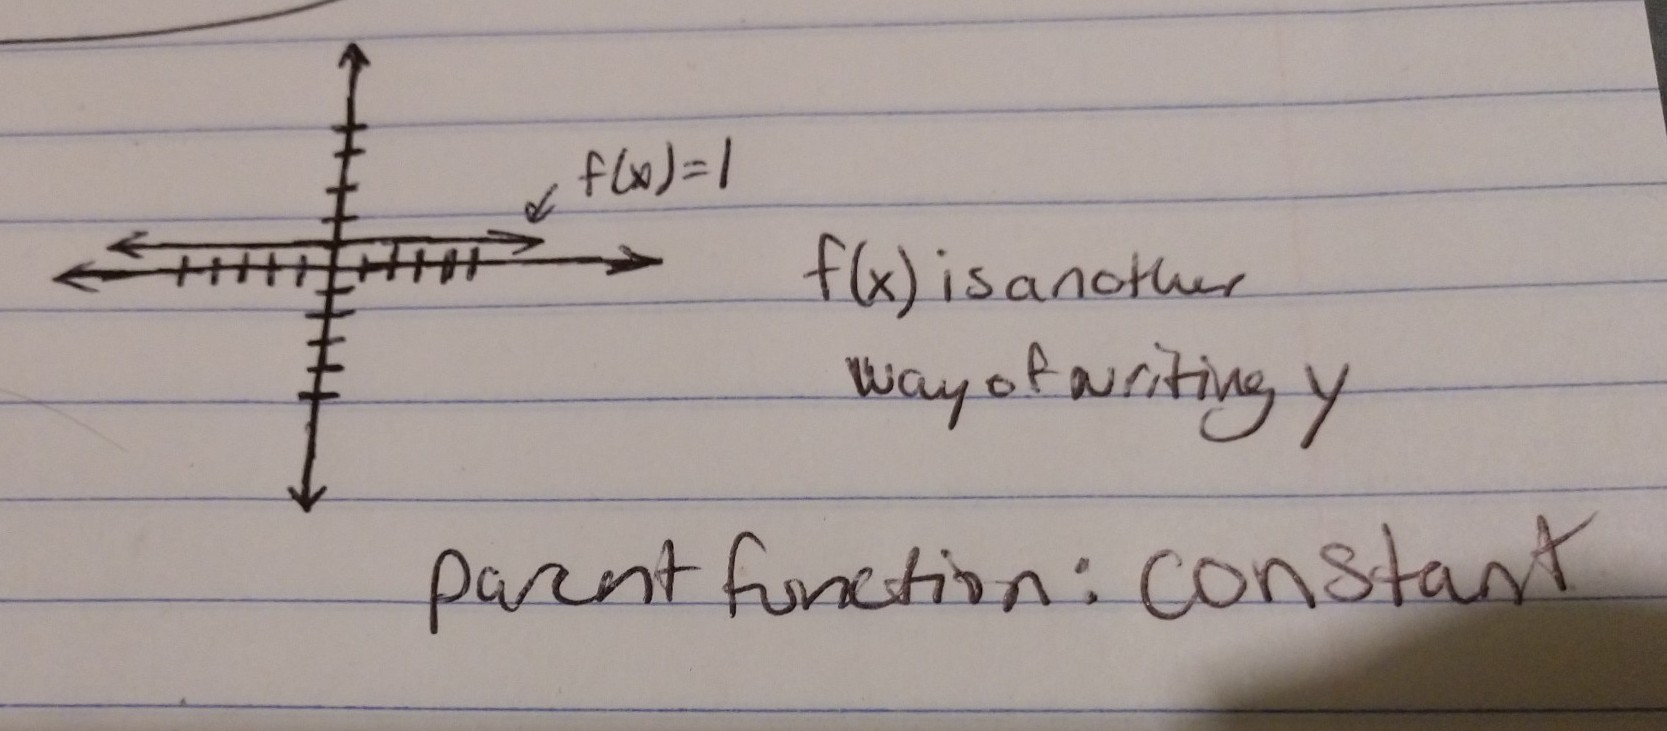 f(x)=1
f(x) is another
way of writing y
parent function: constant